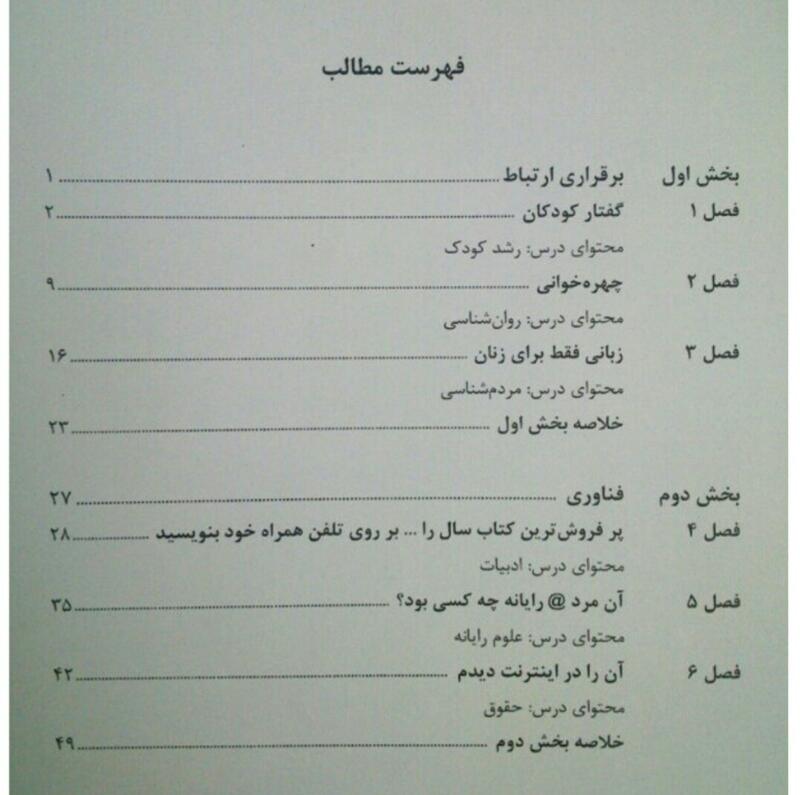 فهرست مطالب
بخش اول برقراری ارتباط ........ ۱
فصل ۱ گفتار کودکان ........ ۲
محتوای درس: رشد کودک
فصل ۲ چهره‌خوانی ........ ۹
محتوای درس: روان‌شناسی
فصل ۳ زبانی فقط برای زنان ........ ۱۶
محتوای درس: مردم‌شناسی
خلاصه بخش اول ........ ۲۳
بخش دوم فناوری ........ ۲۷
فصل ۴ پر فروش‌ترین کتاب سال را ... بر روی تلفن همراه خود بنویسید ........ ۲۸
محتوای درس: ادبیات
فصل ۵ آن مرد @ رایانه چه کسی بود؟ ........ ۳۵
محتوای درس: علوم رایانه
فصل ۶ آن را در اینترنت دیدم ........ ۴۲
محتوای درس: حقوق
خلاصه بخش دوم ........ ۴۹